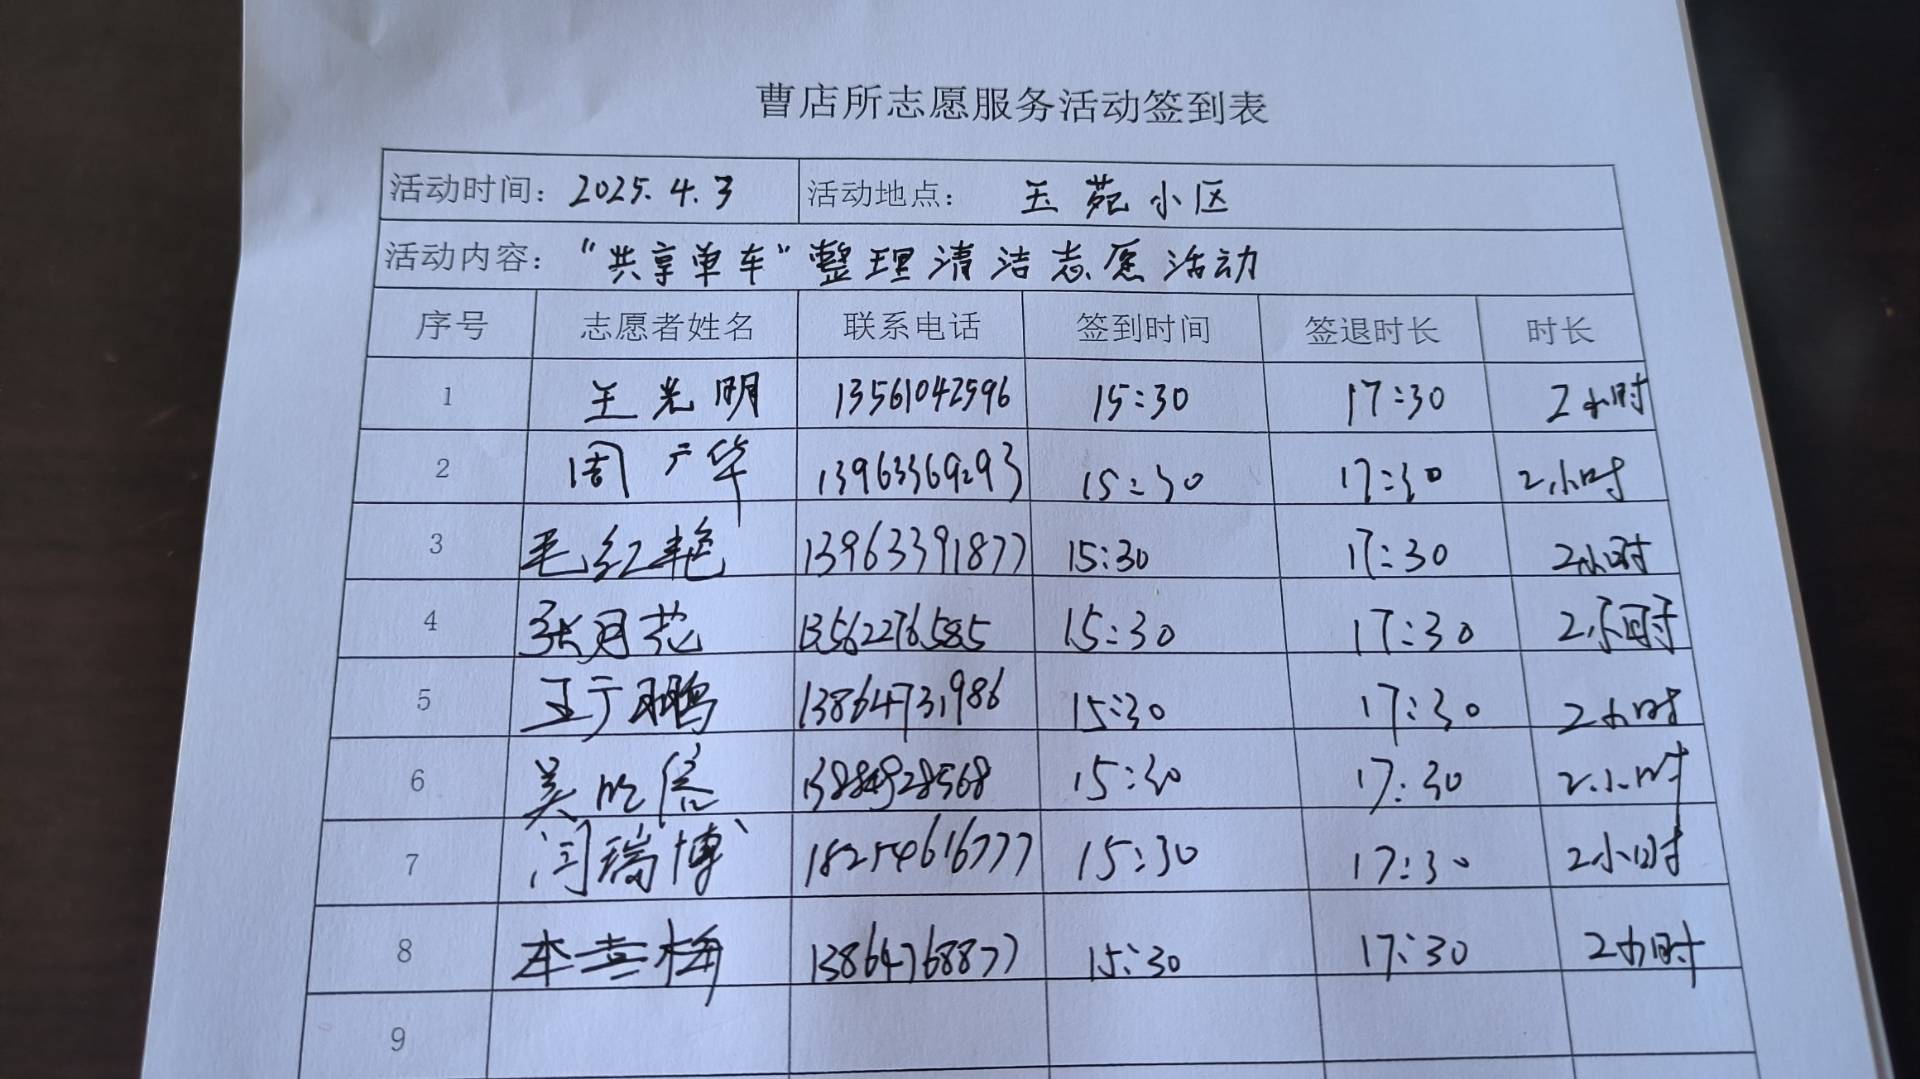 曹店所志愿服务活动签到表
活动时间：2025.4.3 活动地点： 玉苑小区
活动内容：“共享单车”整理清洁志愿活动
序号 志愿者姓名 联系电话 签到时间 签退时长 时长
1 王光明 13561042596 15:30 17:30 2小时
2 周广华 13963369293 15:30 17:30 2小时
3 毛红艳 13963391877 15:30 17:30 2小时
4 张月花 13562276585 15:30 17:30 2小时
5 王广鹏 13864731986 15:30 17:30 2小时
6 吴 15:30 17:30 2小时
7 闫瑞博 18254616777 15:30 17:30 2小时
8 梅 13864768877 15:30 17:30 2小时
9